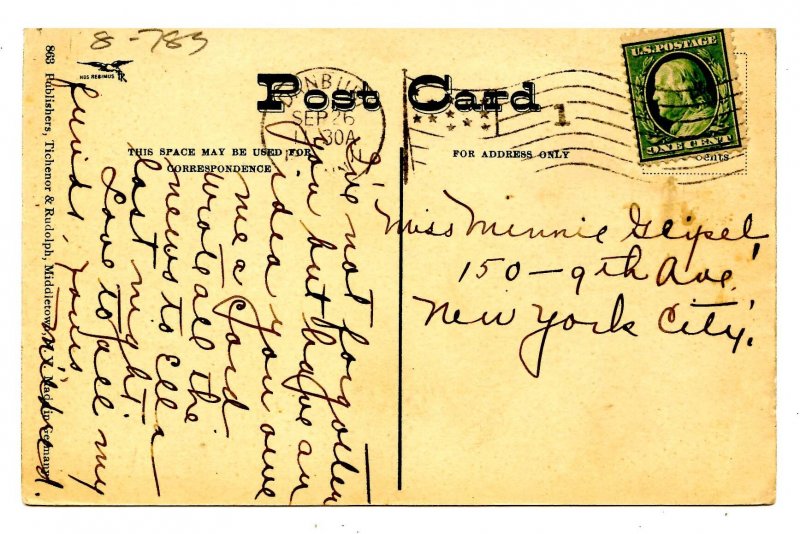 8-783
NOS REBIMUS
863 Publishers, Tichenor & Rudolph, Middletown, N. Y. Made in Germany
Post Card
THIS SPACE MAY BE USED FOR
CORRESPONDENCE
FOR ADDRESS ONLY
SEP 26
30A
1
U.S. POSTAGE
ONE CENT
cents
I've not forgotten
you but have an
idea you owe
me a card
wrote all the
news to Ella
last night
Love to all my
friends, Yours
Mildred.
Miss Minnie Geipel
150-9th Ave.
New York City.